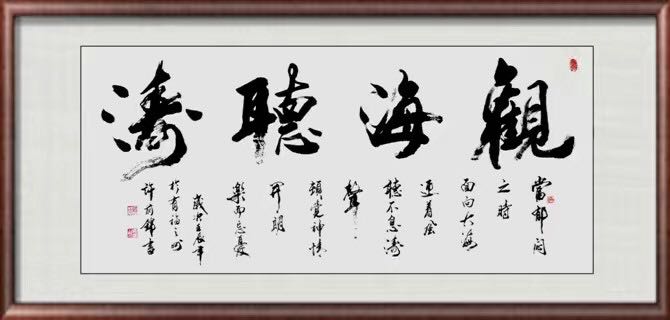 觀海聽濤
當郁闷
之時
面向大海
迎着風
聽不息濤
聲
頓覺神情
開朗
樂而忘憂
歲次壬辰年
於有福之州
許錦書